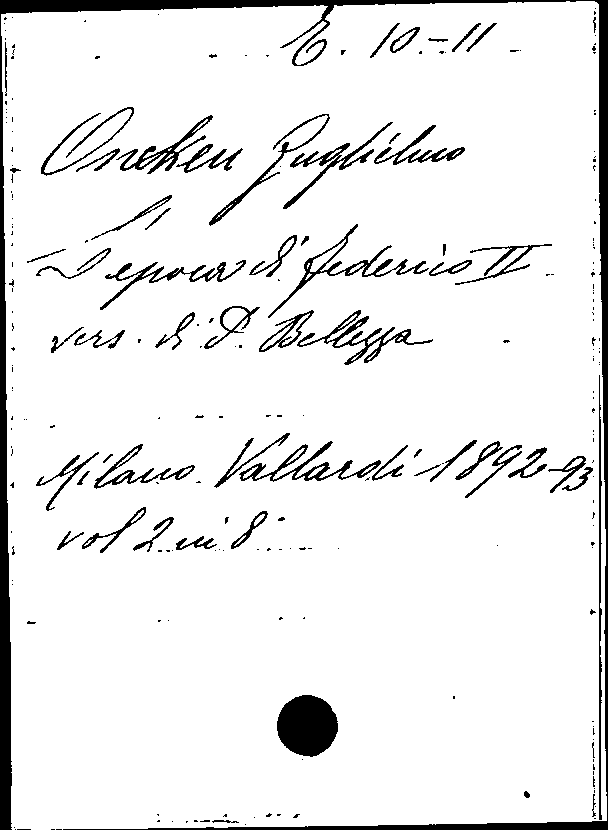 E. 10-11
Oncken Guglielmo
L'epoca di Federico II
vers. di P. Bellezza
Milano Vallardi 1892-93
vol 2 in 8°